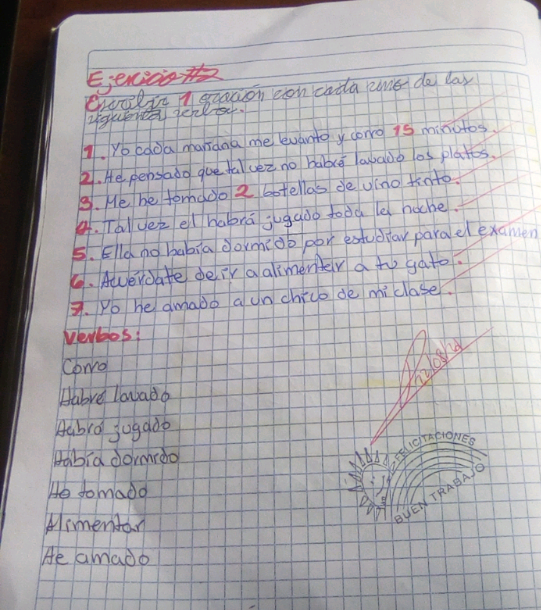 Ejercicio #2
Escribir 1 oración con cada uno de las
siguientes verbos.
1. Yo cada mañana me levanto y corro 15 minutos.
2. He pensado que tal vez no habré lavado los platos.
3. Me he tomado 2 botellas de vino tinto.
4. Tal vez el habrá jugado toda la noche.
5. Ella no había dormido por estudiar para el examen
6. Acuérdate de ir a alimentar a tu gato.
7. Yo he amado a un chico de mi clase.
Verbos:
Corro
Habré lavado
Habrá jugado
Había dormido
He tomado
Alimentar
He amado
FELICITACIONES
BUEN TRABAJO